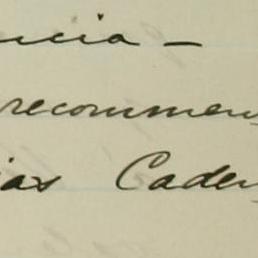 ncia –
recommen
ias Caden